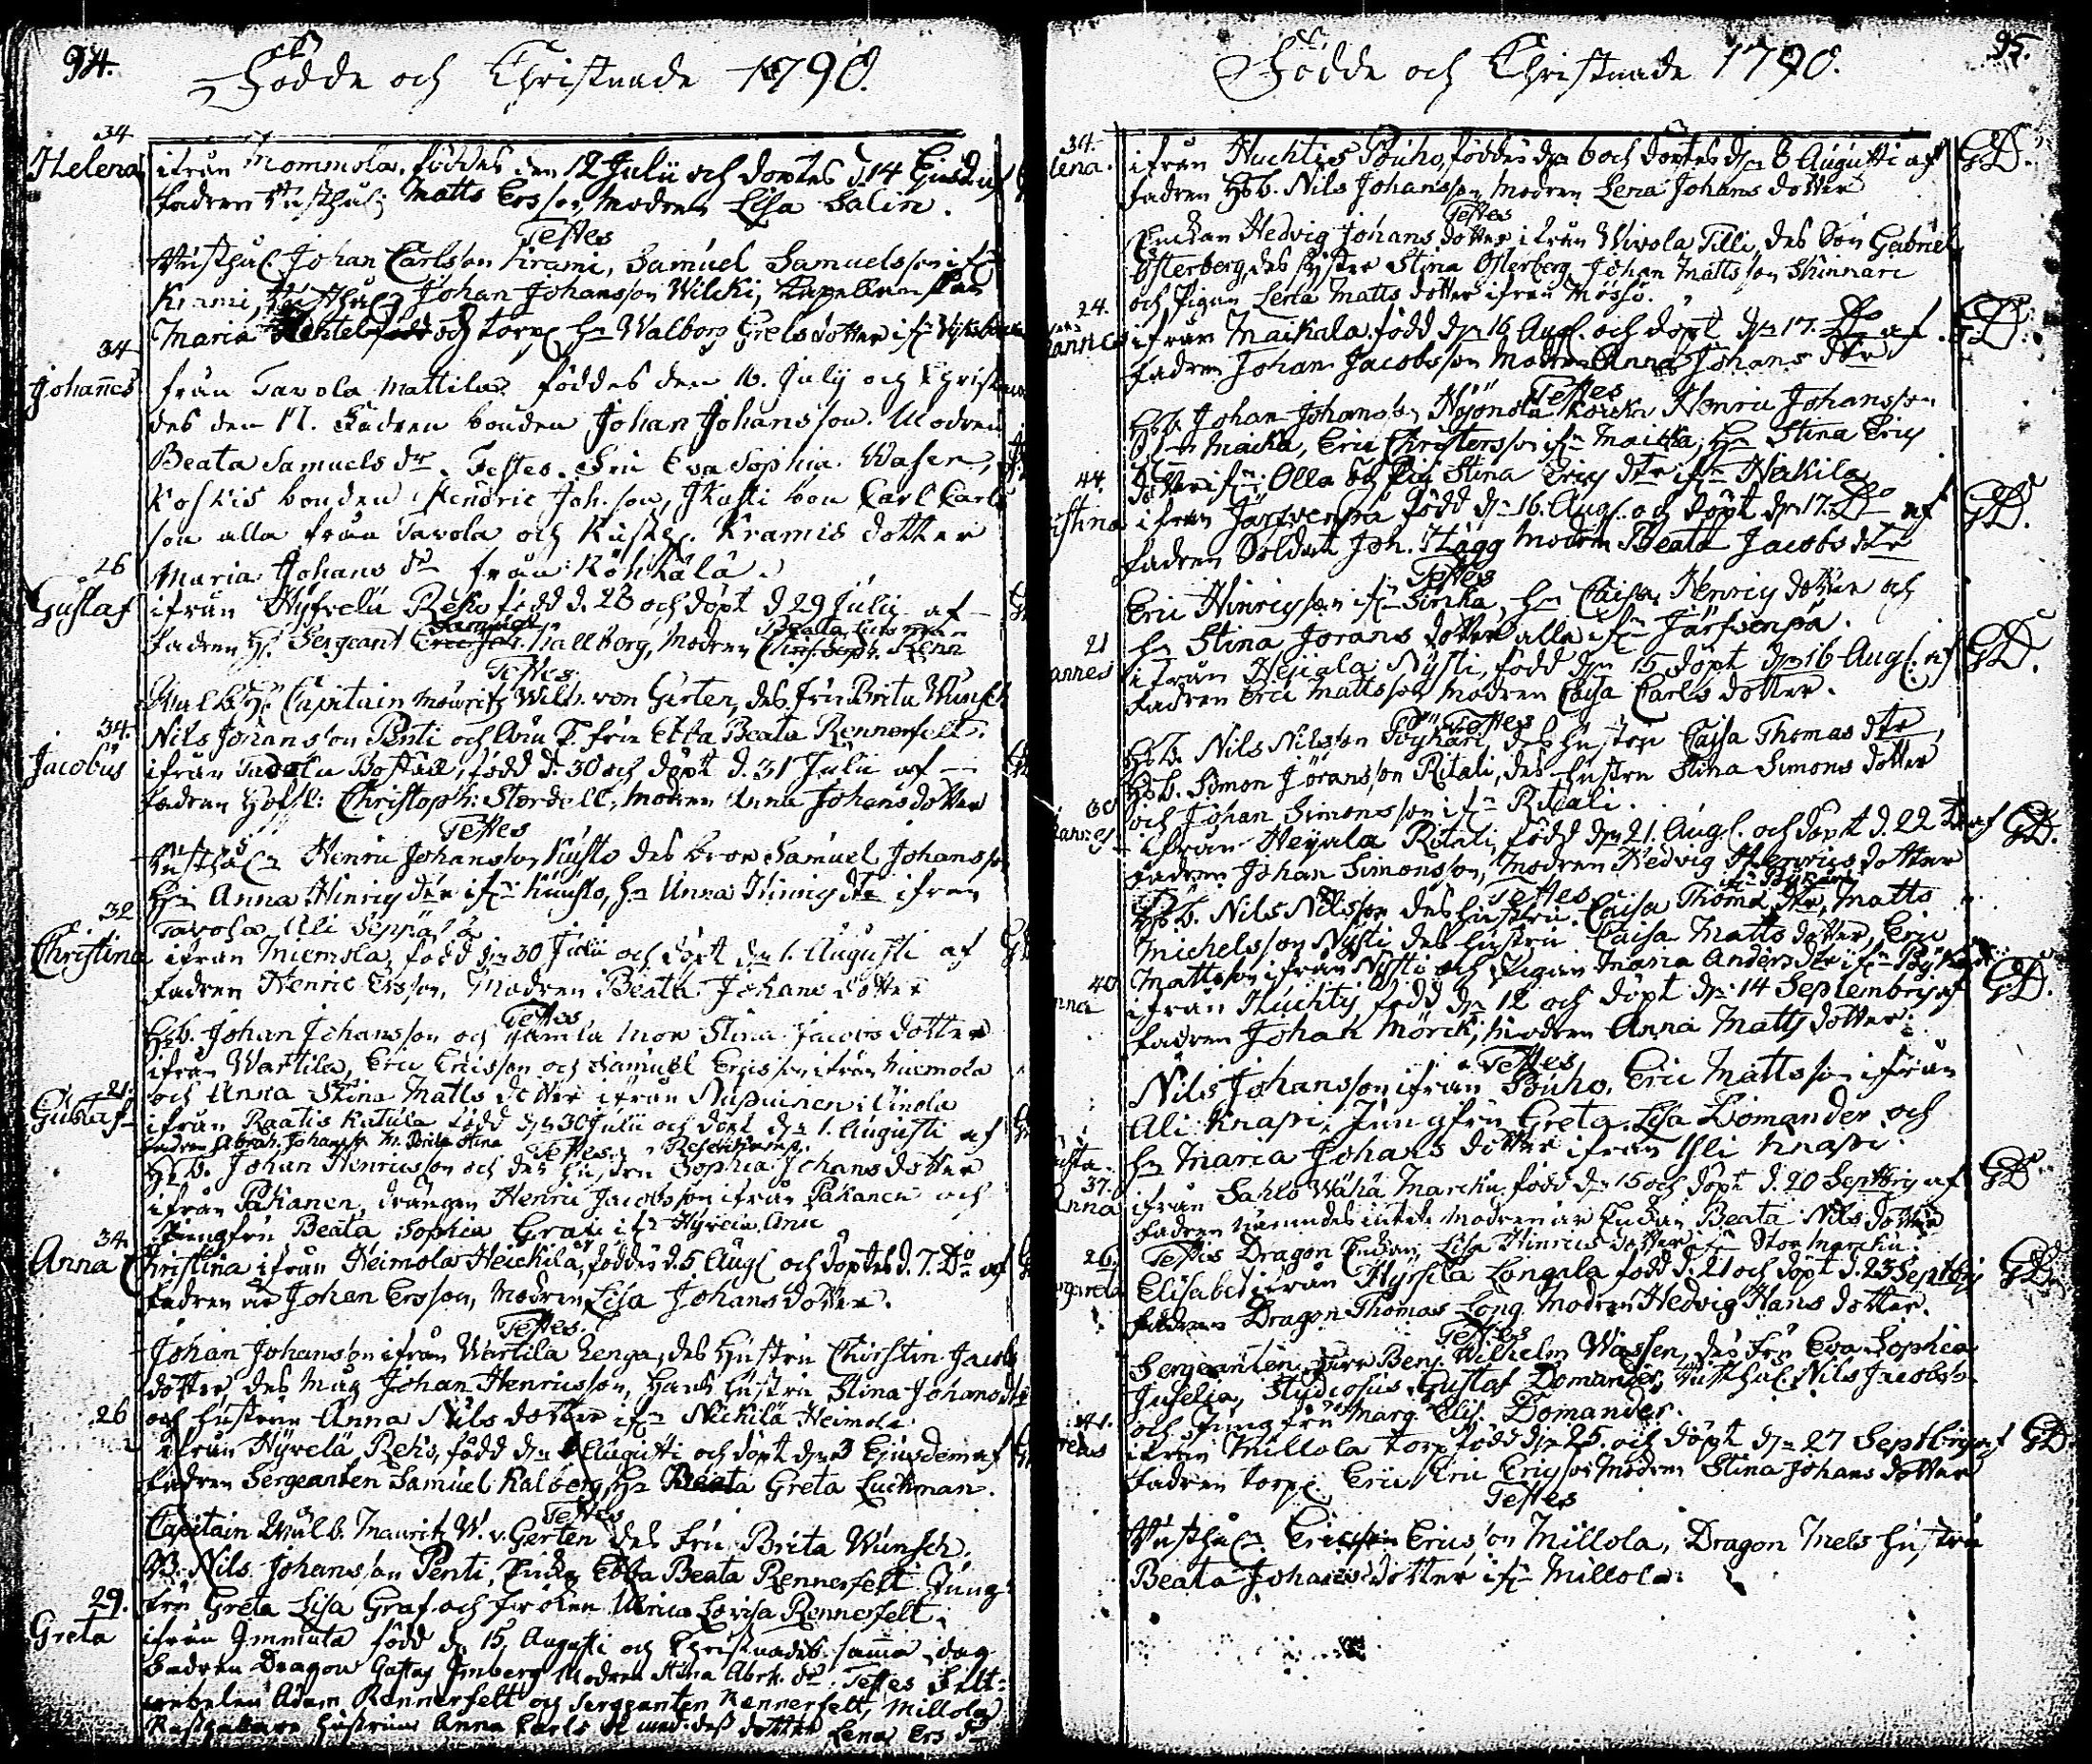 94.
Födde och Christnade 1790.
34
Helena ifrån Mommola, föddes den 12 Julii och döptes d. 14 Ejusd. af
fadren Rusthål: Matts Ersson, Modren Lisa Salin.
Testes
Rusthål. Johan Carlsson Krami, Samuel Samuelsson if:n
Krami, Rusthål:n Johan Johansson Wilcki,
Maria och torp: H:n Walborg Grelsdotter if:n
34
Johannes från Tavola Mattilas föddes den 16. July och Christna
des den 17. Fadren bonden Johan Johansson. Modren
Beata Samuels dr. Testes. Fru Eva Sophia Wasen,
Koskis bonden Hendric Joh. son, Kusti bon Carl Carls
son alla från Tavola och Rusth. Kramis dotter
Maria Johans dr från Köhkälä.
26
Gustaf ifrån Hyfvelä Reko född d. 28 och döpt d 29 Julii af
fadren H:r Sergeant Samuel Kallborg, Modren Beata
Testes
Wälb. H:r Capitain Mouritz Wilh. von Gerten, des fru Brita Wunsch
Nils Johansson Penti och fru Ebba Beata Rennerfelt.
34.
Jacobus ifrån Tavola Boställ, född d. 30 och döpt d. 31 Julii af
fadren Christoph: Stordell, modren Anna Johansdotter
Testes
Rusthål:n Henric Johansson Kusto des bror Samuel Johansson
H:n Anna Hinrics d:r if:n Kuusto, H:n Anna Hinrics dtr ifrån
Tavola Ali Seppälä
32
Christina ifrån Niemola, född d:n 30 Julii och döpt d:n 1. Augusti af
fadren Henric Ersson, Modren Beata Johans dotter
Testes
Hb. Johan Johansson och gamla mor Stina Jacobs dotter
ifrån Warttila, Eric Ericsson och Samuel Ericsson ifrån Niemola
och Anna Stina Matts dotter ifrån
21.
Gustaf ifrån Raatis Katula född d:n 30 Julii och döpt d:n 1. Augusti af
fadren Abrah. Johansson M. Brita Stina
Testes
Hb. Johan Hinricsson och des hustru Sophia Johans dotter
ifrån Pakanen, drängen Henric Jacobsson ifrån Pakanen och
Jungfru Beata Sophia Graf if:n
34.
Anna Christina ifrån Heimola Heickilä, föddes d. 5 Aug. och döptes d. 7. D:o af
fadren Johan Ersson, Modren Lisa Johans dotter.
Testes
Johan Johansson ifrån Wartila Lenga, des Hustru Christin Jacobs
dotter, des Måg Johan Henricsson, Hans hustru Stina Johans dtr
och hustrun Anna Nils dotter if:n Nickilä Heimola
26
ifrån Hyvelä Reko, född d:n 1 Augusti och döpt d:n 3 Ejusdem af
fadren Sergeanten Samuel Kalberg, H:n Beata Greta Luckman.
Testes
Capitain Wälb. Mauritz W. v. Gerten des fru Brita Wunsch.
Nils Johansson Penti, Ebba Beata Rennerfelt Jung
fru Greta Lisa Graf och fröken Ulrica Lovisa Rennerfelt.
29.
Greta ifrån Immula född d. 15 Augusti och Christnades samma dag
Fadren Dragon Imberg Modren Stina Abrh. dr. Testes Felt-
webelen Adam Rennerfelt och Sergeanten Rennerfelt, Millola
Rusthållare hustrun Anna Carls dr med dess dotter Lena Ers dr
95.
Födde och Christnade 1790.
34.
lena. ifrån Huchtis Pouho, föddes d:n 6 och döptes d:n 8 Augusti af GD.
fadren Hsb. Nils Johansson, modren Lena Johans dotter
Testes
Enckan Hedvig Johans dotter ifrån Wivola Tilli, des Son Gabriel
Österberg, des syster Stina Österberg, Johan Mattsson Skinnari
och Pigan Lena Matts dotter ifrån Mösö.
24.
ifrån Maikala född d:n 16 Aug. och döpt d:n 17. D:o af GD.
fadren Johan Jacobsson Modren Anna Johans dtr
Testes
Hsb. Johan Johansson Henric Johansson
Maicka, Eric Christersson if:n Maicka, H:n Stina Erics
dotter if:n Olla och Pig. Stina Erics dtr if:n Heikilä
44.
istina ifrån Järfvenpä född d:n 16. Aug. och döpt d:n 17. D:o af GD.
fadren Soldat Joh. Hägg Modren Beata Jacobs dtr
Testes
Eric Hinricsson if:n Sircka, H:n Caisa Henrics dotter och
H:n Stina Jörans dotter alla if:n Järfvenpä.
21
annes ifrån Hejala Nysti, född d:n 15 döpt d:n 16 Aug. af GD.
fadren Eric Mattsson Modren Caisa Carls dotter.
Testes
Hsb. Nils Nilsson Pöykäri, des hustru Caisa Thomas dtr,
Hsb. Simon Jöransson Ritali, des hustru Stina Simons dotter
och Johan Simonsson if:n Ritali.
30
annes ifrån Heyala Ritali, född d:n 21. Aug. och döpt d. 22 D:o af GD.
fadren Johan Simonsson, modren Hedvig Henrics dotter
Testes
Hsb. Nils Nilsson des hustru Caisa Thoma dtr, Matts
Michelsson Nysti des hustru Caisa Matts dotter, Eric
Mattsson ifrån Nysti och Pigan Maria Anders dtr if:n
40.
nna ifrån Huchtis, född d:n 12 och döpt d:n 14 Septembris af GD.
fadren Johan Mörck, modren Anna Matts dotter.
Testes
Nils Johansson ifrån Pouho, Eric Mattsson ifrån
Ali Knapi, Jungfru Greta Lisa Domander och
H:n Maria Johans dotter ifrån Yli Knapi.
37.
Anna ifrån Sahko Wähä Marcku född d:n 15 och döpt d. 20 Septbris af GD.
fadren modren är Enckan Beata Nils dotter
Testes Dragon Enckan Lisa Hinrics dotter if:n Stor Marcku.
26.
rgareta Elisabet ifrån Hyrsilä Longala född d. 21 och döpt d. 23 Septbris GD.
fadren Dragon Thomas Long modren Hedvig Hans dotter.
Testes
Sergeanten Herr Benj. Wilhelm Wassen, des Fru Eva Sophia
Studiosus Gustaf Domander, Rusthål. Nils Jacobsson
och Jungfru Marg. Elis. Domander.
41.
reas ifrån Millola torp född d:n 25. och döpt d:n 27 Septbris af GD
fadren torp: Eric Ericsson Modren Stina Johans dotter
Testes
Rusthål:n Ericsson Millola, Dragon Mels hustru
Beata Johans dotter if:n Millola.